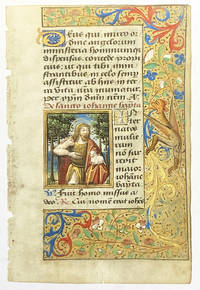 Deus qui miro or
dine angelorum
ministeria hominumqz
dispensas. concede propi
cius. ut qui tibi mini
strantibus in celo semp
assistitur ab hiis in ter
ra vita nra muniatur.
De sancto iohanne bapta
Inter
natos
mulie
rum
non sur
rexit
maior
iohane
bapta
fuit homo missus a
deo. R. Cui nomē erat iohēs